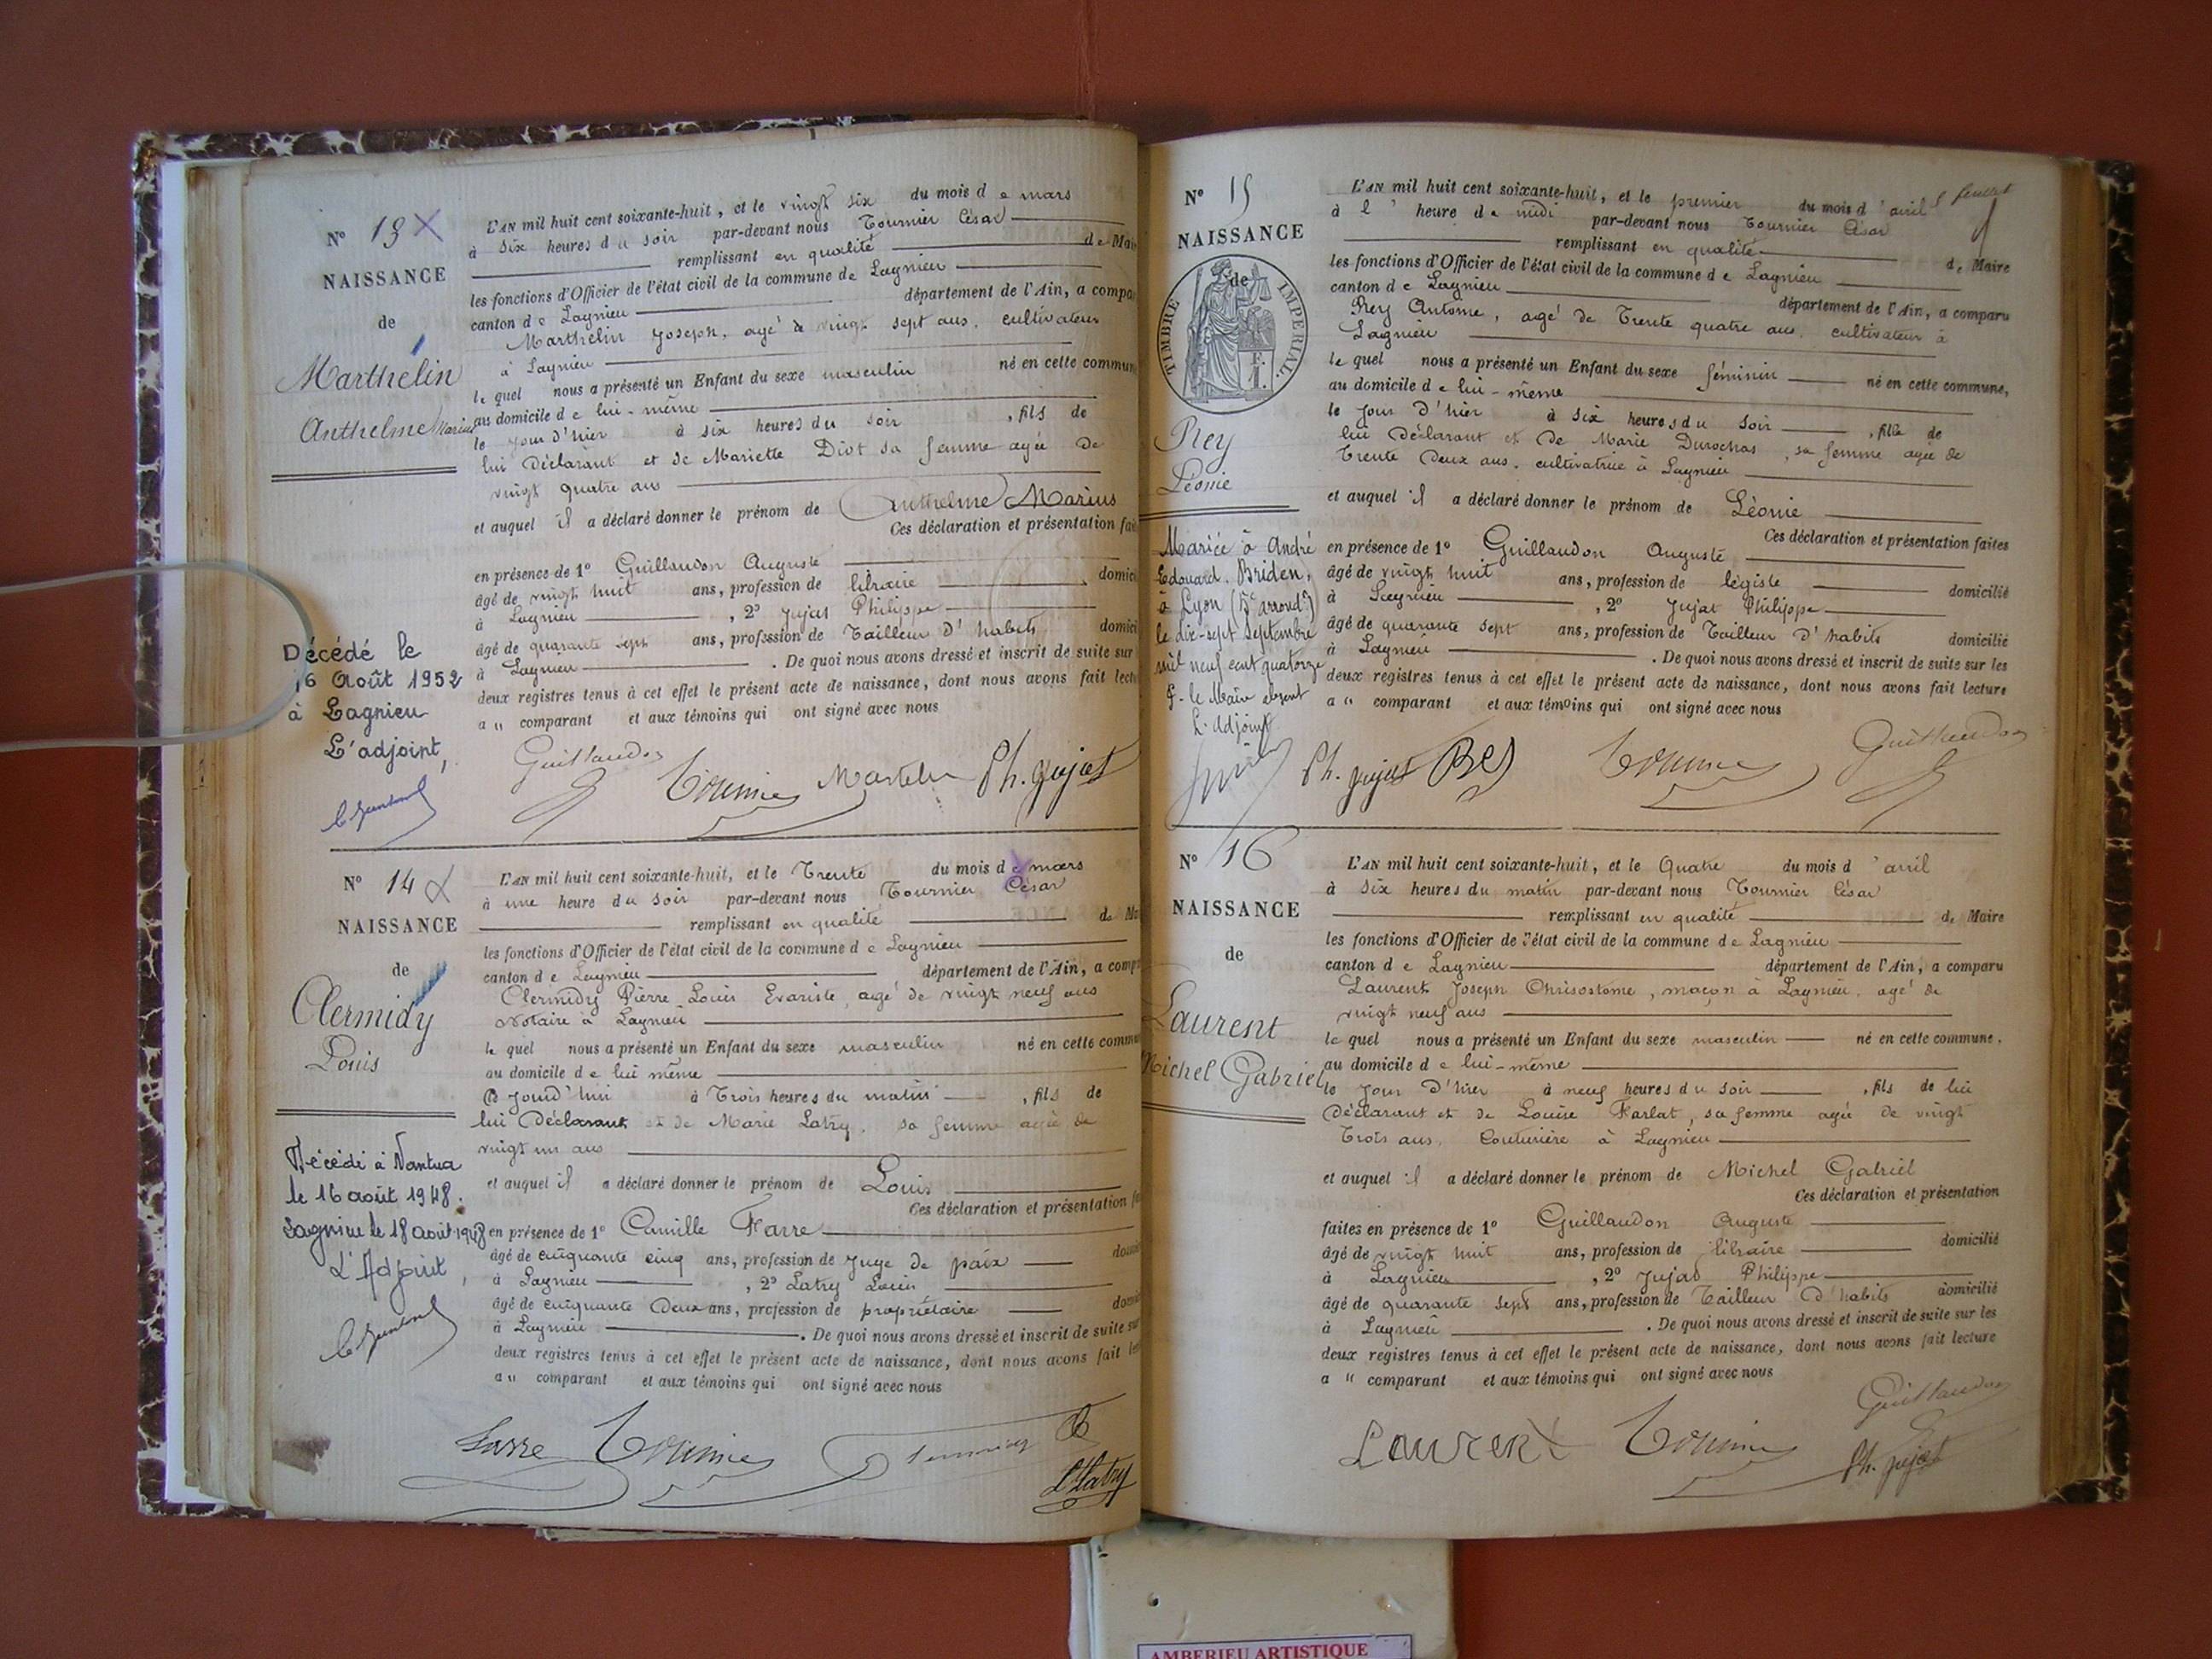 N° 13 X
NAISSANCE
de
Marthelin
Anthelme Marius
L'AN mil huit cent soixante-huit, et le vingt six du mois de mars
à six heures du soir par-devant nous Tournier César
remplissant en qualité de Mai
les fonctions d'Officier de l'état civil de la commune de Lagnieu
canton de Lagnieu département de l'Ain, a compa
Marthelin Joseph, agé de vingt sept ans, cultivateur
à Lagnieu
lequel nous a présenté un Enfant du sexe masculin né en cette commun
au domicile de lui-même
le jour d'hier à six heures du soir, fils de
lui Déclarant et de Mariette Diot sa femme agée de
vingt quatre ans
et auquel il a déclaré donner le prénom de Anthelme Marius
Ces déclaration et présentation fai
en présence de 1° Guillaudon Auguste
âgé de vingt huit ans, profession de libraire domici
à Lagnieu, 2° Jujat Philippe
âgé de quarante sept ans, profession de Tailleur D'habits domici
à Lagnieu. De quoi nous avons dressé et inscrit de suite sur
deux registres tenus à cet effet le présent acte de naissance, dont nous avons fait lectu
a " comparant et aux témoins qui ont signé avec nous
Décédé le
16 Août 1952
à Lagnieu
L'adjoint,
Guillaudon Tournier Martelin Ph. Jujat
N° 14
NAISSANCE
de
Clermidy
Louis
L'AN mil huit cent soixante-huit, et le Trente du mois de mars
à une heure du soir par-devant nous Tournier César
remplissant en qualité de Ma
les fonctions d'Officier de l'état civil de la commune de Lagnieu
canton de Lagnieu département de l'Ain, a comp
Clermidy Pierre Louis Evariste, agé de vingt neuf ans
Notaire à Lagnieu
lequel nous a présenté un Enfant du sexe masculin né en cette commu
au domicile de lui même
Ce jourd'hui à Trois heures du matin, fils de
lui Déclarant et de Marie Latry, sa femme agée de
vingt un ans
et auquel il a déclaré donner le prénom de Louis
Ces déclaration et présentation fa
en présence de 1° Camille Farre
âgé de cinquante cinq ans, profession de Juge de paix domi
à Lagnieu, 2° Latry Louis
âgé de cinquante Deux ans, profession de propriétaire domi
à Lagnieu. De quoi nous avons dressé et inscrit de suite sur
deux registres tenus à cet effet le présent acte de naissance, dont nous avons fait le
a " comparant et aux témoins qui ont signé avec nous
Décédé à Nantua
le 16 août 1948.
Lagnieu le 18 août 1948
L'Adjoint,
Farre Tournier
L Latry
N° 15
NAISSANCE
de
TIMBRE IMPERIAL.
Rey
Léonie
5 feuillet
L'AN mil huit cent soixante-huit, et le premier du mois d'avril
à l'heure de midi par-devant nous Tournier César
remplissant en qualité de Maire
les fonctions d'Officier de l'état civil de la commune de Lagnieu
canton de Lagnieu département de l'Ain, a comparu
Rey Antoine, agé de Trente quatre ans, cultivateur à
Lagnieu
lequel nous a présenté un Enfant du sexe féminin né en cette commune,
au domicile de lui-même
le jour d'hier à six heures du soir, fille de
lui Déclarant et de Marie Durochas, sa femme agée de
Trente Deux ans, cultivatrice à Lagnieu
et auquel il a déclaré donner le prénom de Léonie
Ces déclaration et présentation faites
en présence de 1° Guillaudon Auguste
âgé de vingt huit ans, profession de légiste domicilié
à Lagnieu, 2° Jujat Philippe
âgé de quarante sept ans, profession de Tailleur D'habits domicilié
à Lagnieu. De quoi nous avons dressé et inscrit de suite sur les
deux registres tenus à cet effet le présent acte de naissance, dont nous avons fait lecture
a " comparant et aux témoins qui ont signé avec nous
Mariée à André
Edouard Briden,
à Lyon (5e arrondt)
le dix-sept Septembre
mil neuf cent quatorze
P. le Maire absent
L'Adjoint
Ph. Jujat Rey Tournier Guillaudon
N° 16
NAISSANCE
de
Laurent
Michel Gabriel
L'AN mil huit cent soixante-huit, et le Quatre du mois d'avril
à six heures du matin par-devant nous Tournier César
remplissant en qualité de Maire
les fonctions d'Officier de l'état civil de la commune de Lagnieu
canton de Lagnieu département de l'Ain, a comparu
Laurent Joseph Chrisostome, maçon à Lagnieu, agé de
vingt neuf ans
lequel nous a présenté un Enfant du sexe masculin né en cette commune.
au domicile de lui-même
le jour d'hier à neuf heures du soir, fils de lui
Déclarant et de Louise Farlat, sa femme agée de vingt
Trois ans, Couturière à Lagnieu
et auquel il a déclaré donner le prénom de Michel Gabriel
Ces déclaration et présentation
faites en présence de 1° Guillaudon Auguste
âgé de vingt huit ans, profession de libraire domicilié
à Lagnieu, 2° Jujat Philippe
âgé de quarante sept ans, profession de Tailleur D'habits domicilié
à Lagnieu. De quoi nous avons dressé et inscrit de suite sur les
deux registres tenus à cet effet le présent acte de naissance, dont nous avons fait lecture
a " comparant et aux témoins qui ont signé avec nous
Laurent Tournier Guillaudon
Ph. Jujat
AMBERIEU ARTISTIQUE